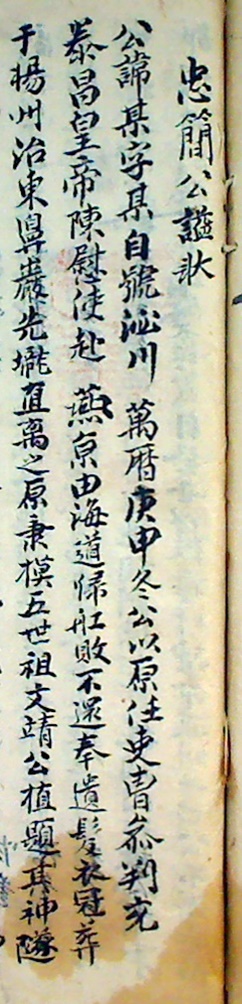 忠簡公諡狀
公諱某字某自號泌川 萬曆庚申冬公以原任吏曹參判充
泰昌皇帝陳慰使赴 燕京由海道歸舡敗不還奉遺髮衣冠葬
于楊州治東鼻巖先壠直离之原秉模五世祖文靖公植題其神隧